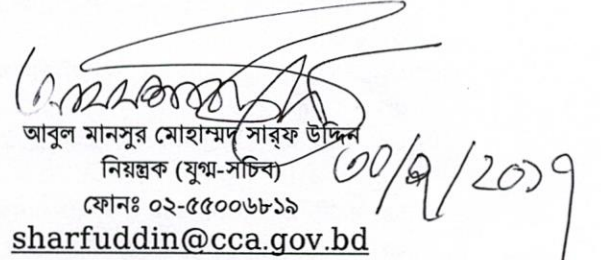 আবুল মানসুর মোহাম্মদ সার্‌ফ উদ্দিন
নিয়ন্ত্রক (যুগ্ম-সচিব)
ফোনঃ ০২-৫৫০০৬৮১৯
sharfuddin@cca.gov.bd